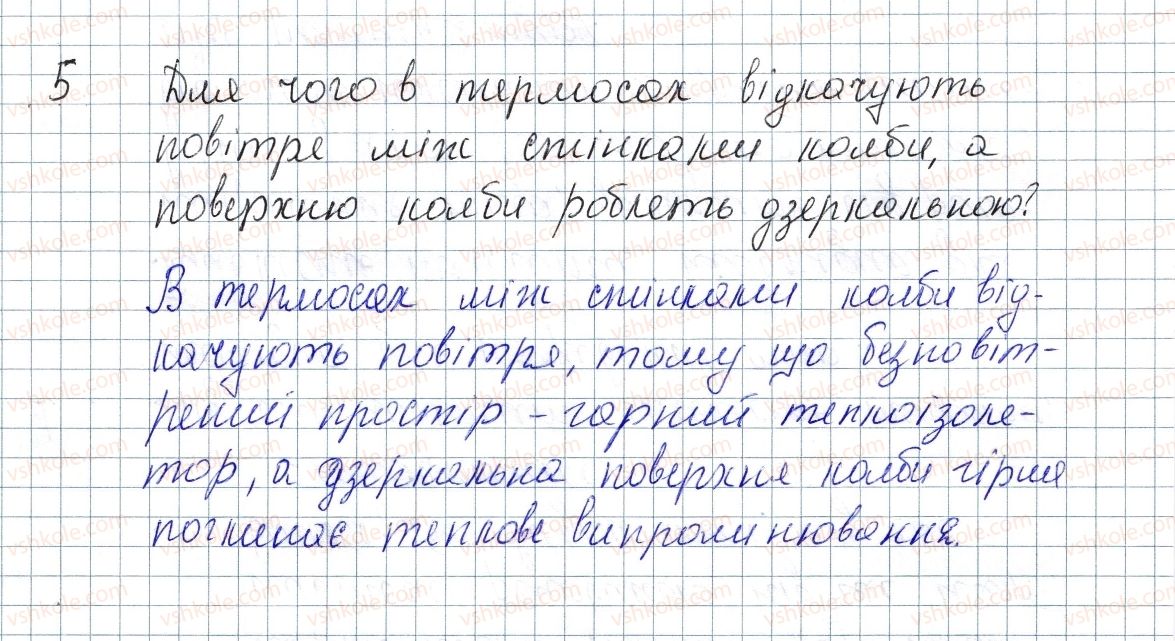 5 Для чого в термосах відкачують
повітря між стінками колби, а
поверхню колби роблять дзеркальною?
В термосах між стінками колби від-
качують повітря, тому що безповіт-
ряний простір - гарний теплоізоля-
тор, а дзеркальна поверхня колби гірше
поглинає теплове випромінювання.
vshkole.com